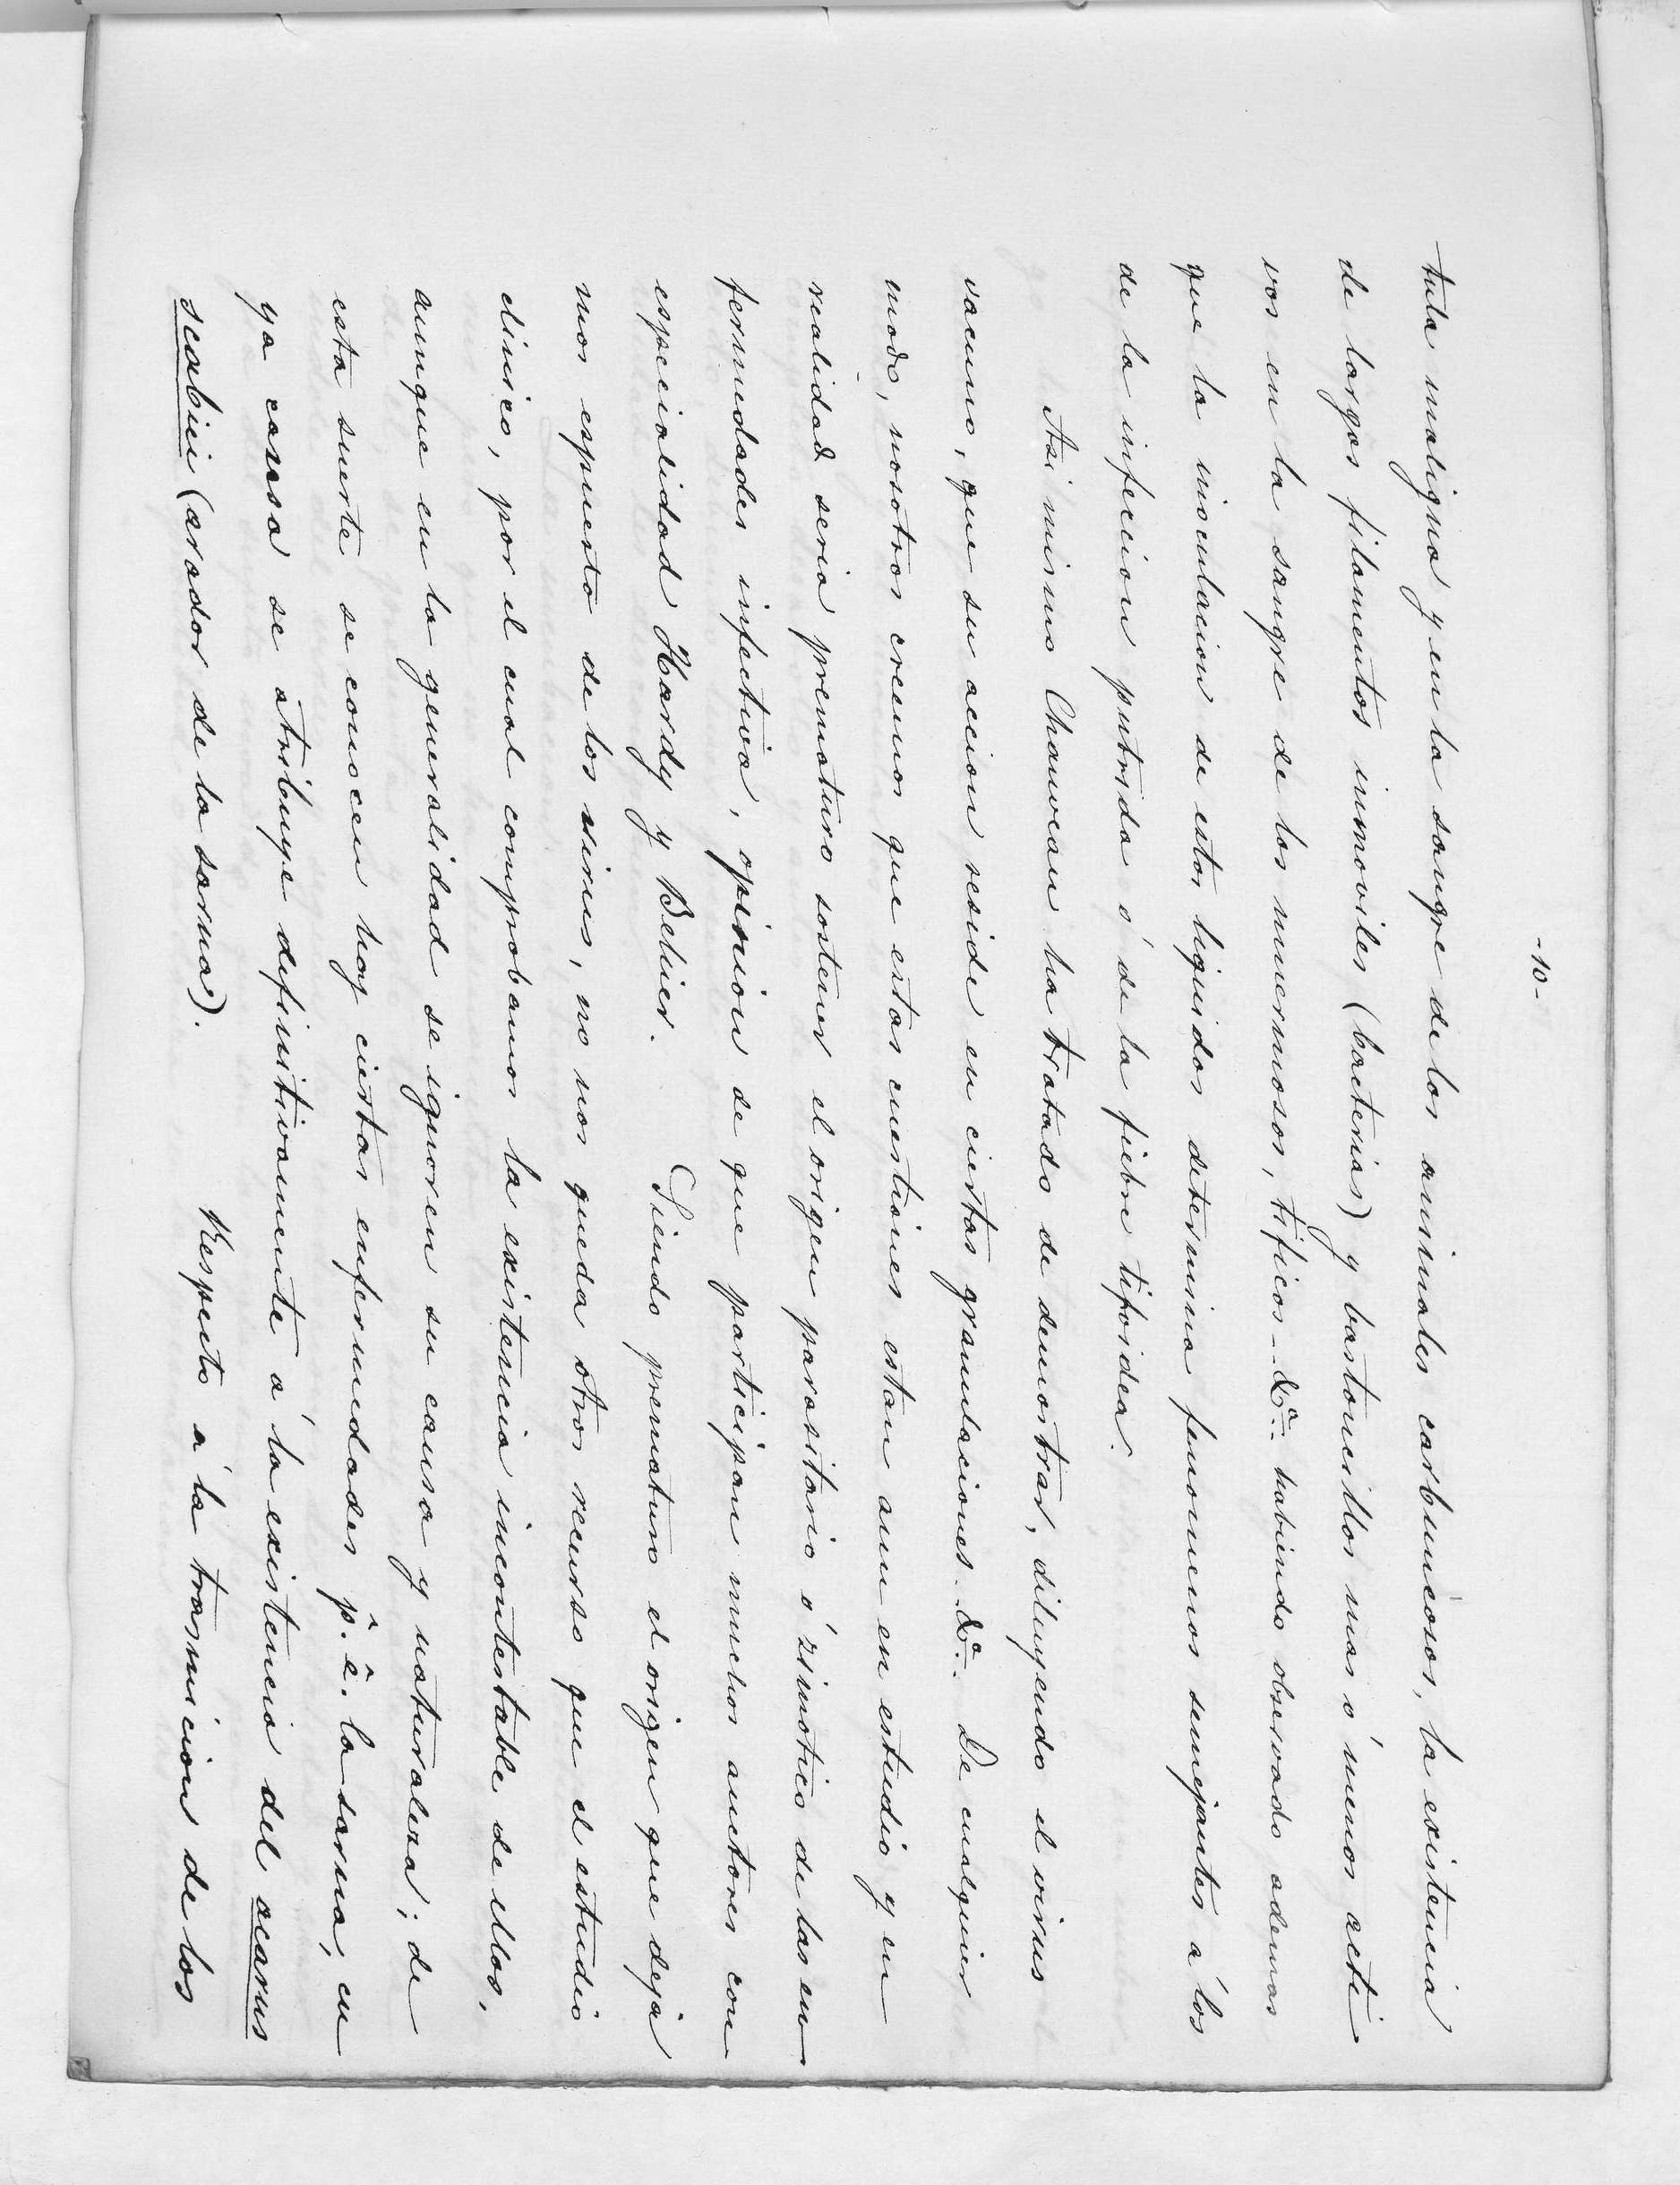 -10-
tula maligna y en la sangre de los animales carbuncosos, la existencia
de largos filamentos inmoviles (bacterias) y bastoncillos mas ó menos acti-
vos en la sangre de los muermosos, tificos-&ª. habiendo observado ademas
que la inoculacion de estos liquidos determina fenomenos semejantes á los
de la infeccion putrida ó de la fiebre tifoidea.
Asi mismo Chauveau ha tratado de demostrar, diluyendo el virus
vacuno, que su accion reside en ciertas granulaciones. &ª. De cualquier
modo, nosotros creemos que estas cuestiones estan aun en estudio y en
realidad seria prematuro sostener el origen parasitario ó zimotico de las en-
fermedades infectiva, opinion de que participan muchos autores con
especialidad Hardy y Behier. Siendo prematuro el origen que deja
mos espuesto de los virus, no nos queda otros recurso que el estudio
clinico, por el cual comprobamos la existencia incontestable de ellos,
aunque en la generalidad se ignoren su causa y naturaleza; de
esta suerte se conocen hoy ciertas enfermedades p. ê. la sarna, cu
ya causa se atribuye definitivamente á la existencia del acarus
scabiei (arador de la sarna). Respecto á la trasmicion de los